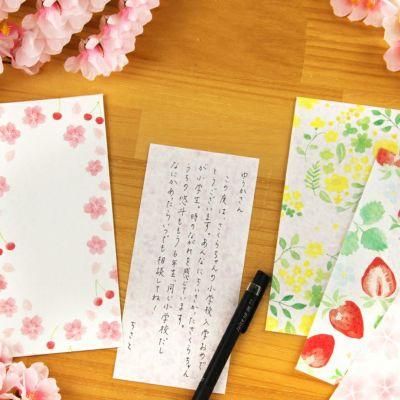 ゆうかさん
この度は、さくらちゃんの小学校入学おめで
とうございます。あんなにちいさかったさくらちゃん
が小学生。時のながれを感じています。
うちの悠斗ももう6年生。同じ小学校だし
なにかあったらいつでも相談してね！
ちさと